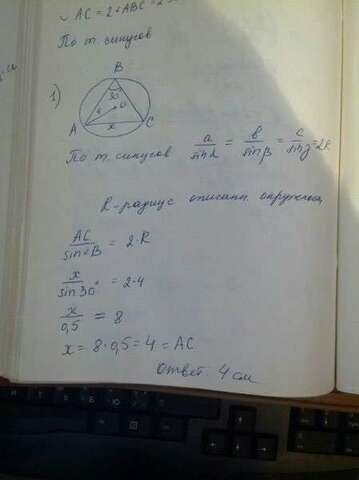 ∪ AC = 2∠ABC = 2
По т. синусов
1)
B
30°
4
O
A
x
C
По т. синусов a/sinα = b/sinβ = c/sinγ = 2R
R-радиус описанн. окружности
AC/sin∠B = 2·R
x/sin30° = 2·4
x/0,5 = 8
x = 8·0,5 = 4 = AC
Ответ: 4 см